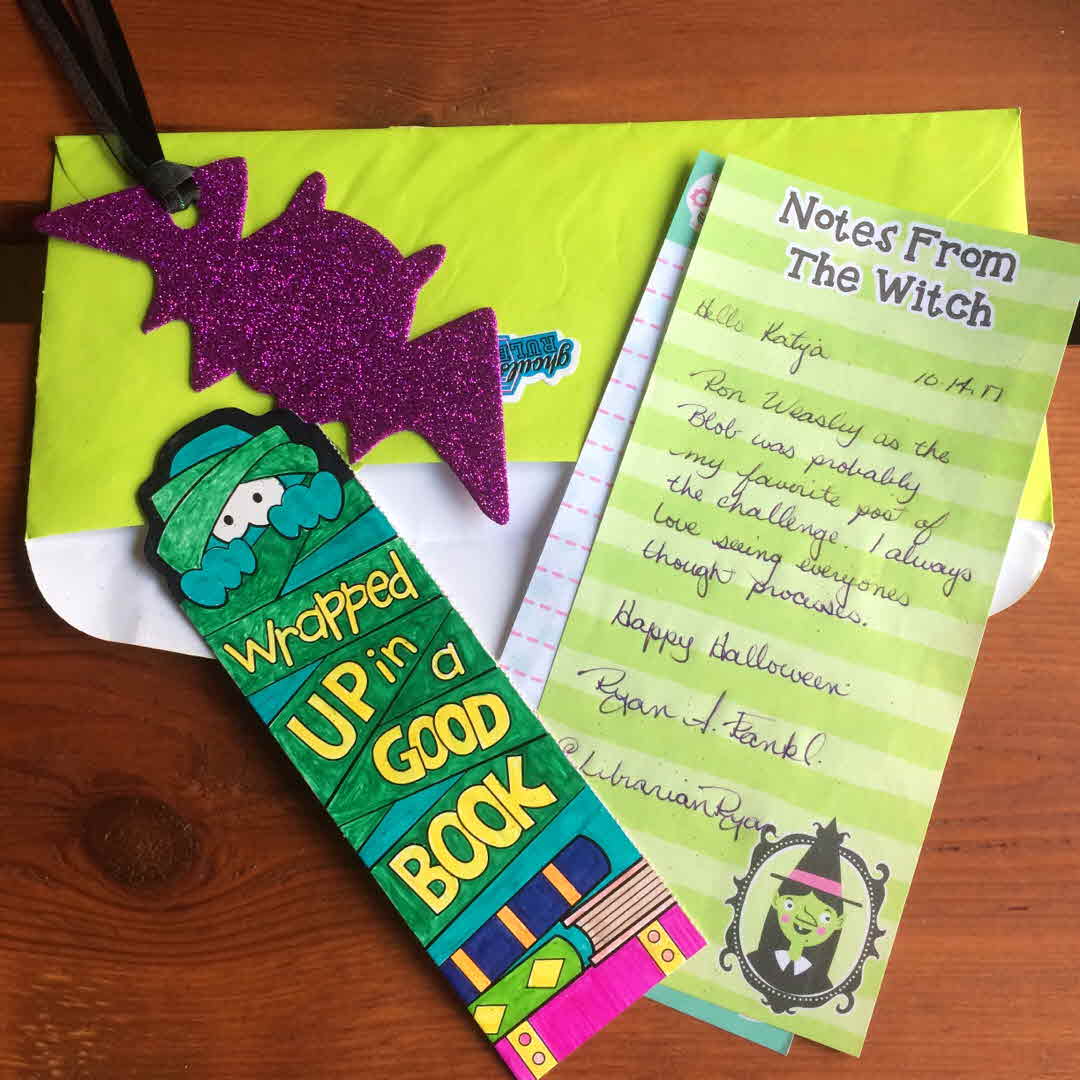 Notes From
The Witch
Hello Katja
10.14.17
Ron Weasley as the
Blob was probably
my favorite post of
the challenge. I always
love seeing everyones
though processes.
Happy Halloween
Ryan
@LibrarianRyan
ghouls
RULE
Wrapped
UP in
a
GOOD
BOOK